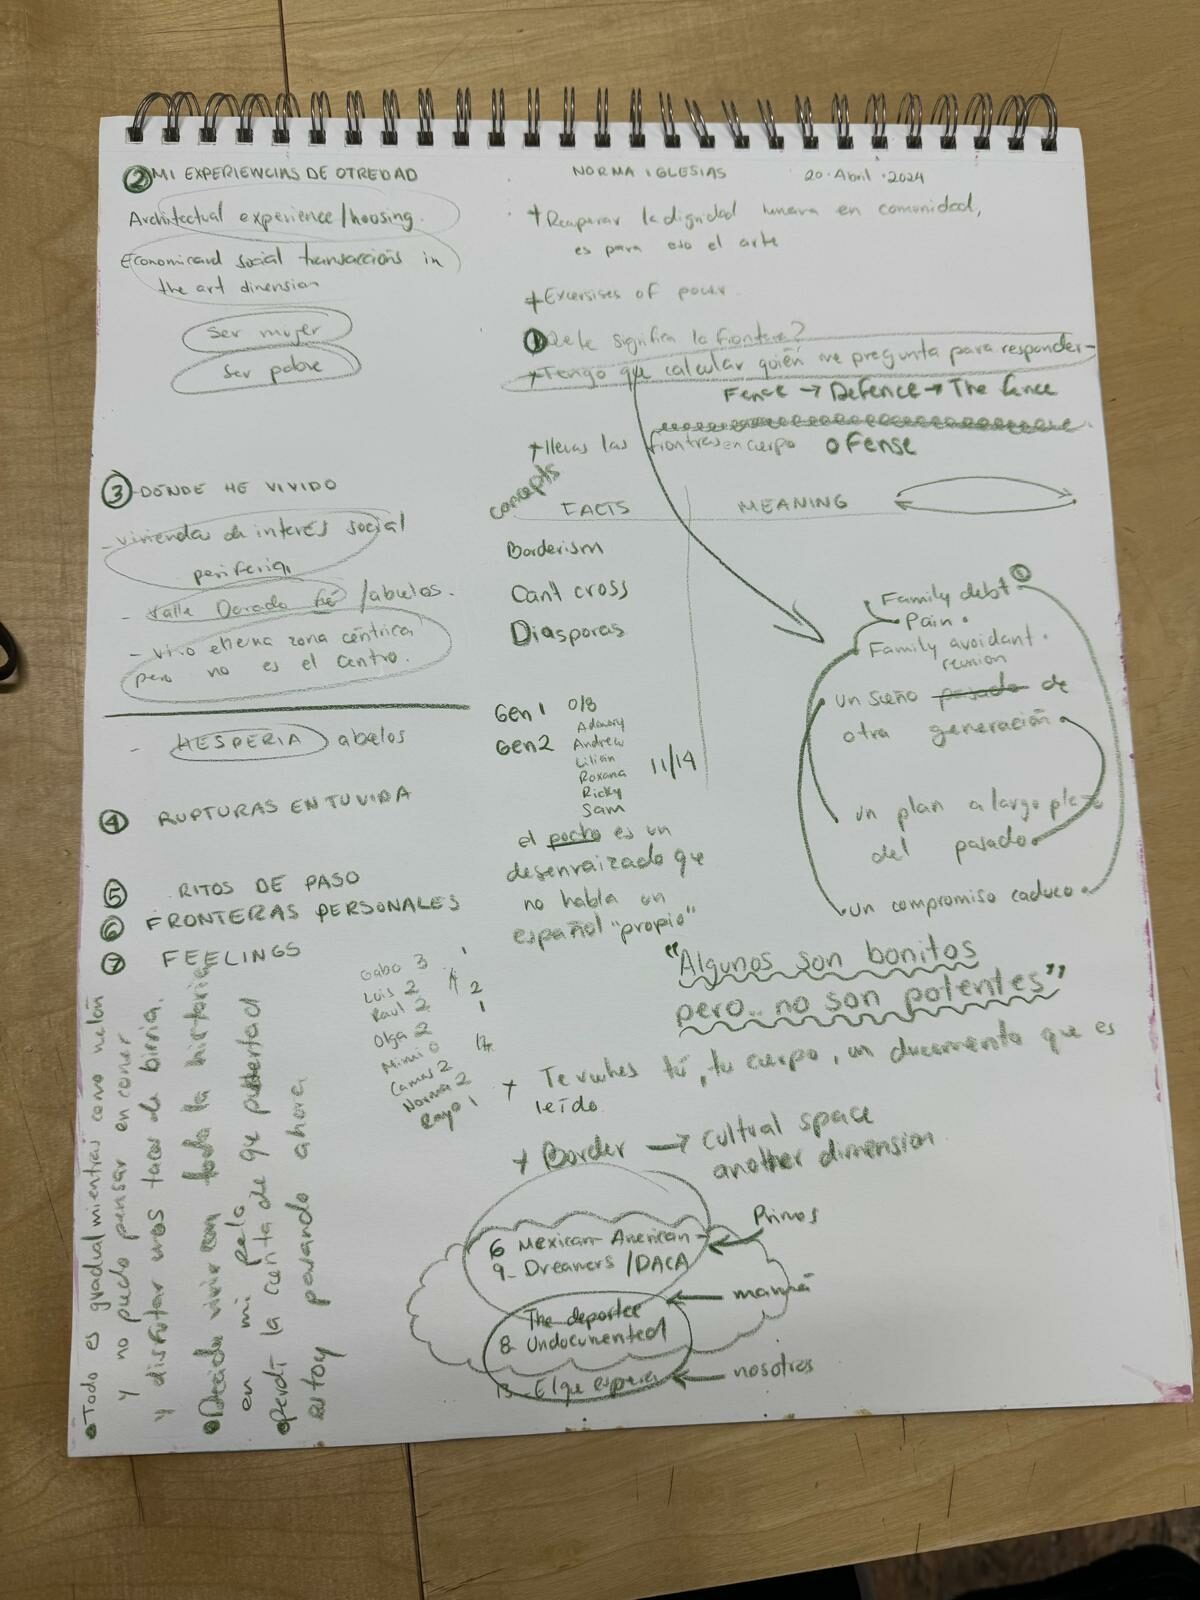 ② MI EXPERIENCIAS DE OTREDAD
Architectual experience/hoosing.
Economic and social transaccións in
the art dimension
Ser mujer
Ser pobre
③ DÓNDE HE VIVIDO
- viviendas de interés social
periferia
- Valle Dorado /abuelos.
- vivo zona céntrica
pero no es el centro.
- HESPERIA abuelos
④ RUPTURAS EN TU VIDA
⑤ RITOS DE PASO
⑥ FRONTERAS PERSONALES
⑦ FEELINGS
NORMA IGLESIAS 20.Abril.2024
+ la dignidad en comunidad,
es para eso el arte
+ Excersises of power
① Qué te significa la frontera?
+ Tengo que calcular quién me pregunta para responder-
Fence → Defence → The fence
+ llevas las en cuerpo oFense
concepts
FACTS MEANING
Borderism
Cant cross
Diasporas
Gen 1 0/8
Gen 2
Andrew
Lilian
Roxana
Ricky
Sam
11/14
el pocho es un
desenraizado que
no habla un
español "propio"
Family debt ①
Pain.
Family avoidant.
reunion
un sueño pasado de
otra generación
un plan a largo plazo
del pasado
un compromiso caduco
"Algunos son bonitos
pero.. no son potentes"
+ Te vuelves tú, tu cuerpo, un documento que es
leído
+ Border → cultual space
another dimension
Gabo 3
Luis 2
Raul 2
Olga 2
Mimi 0
Camas 2
Norma 2
Rayo 1
1
2
1
6 Mexican-American- ← Primos
9- Dreamers /DACA
The deportee ← mamá
8 Undocumented
13- El que espera ← nosotros
• Todo es gradual mientras como melón
y no puedo pensar en comer
y disfrutar unos tacos de birria.
• Decido vivir con toda la historia
en mi pelo
• perdí la cuenta de que pubertad
estoy pasando ahora